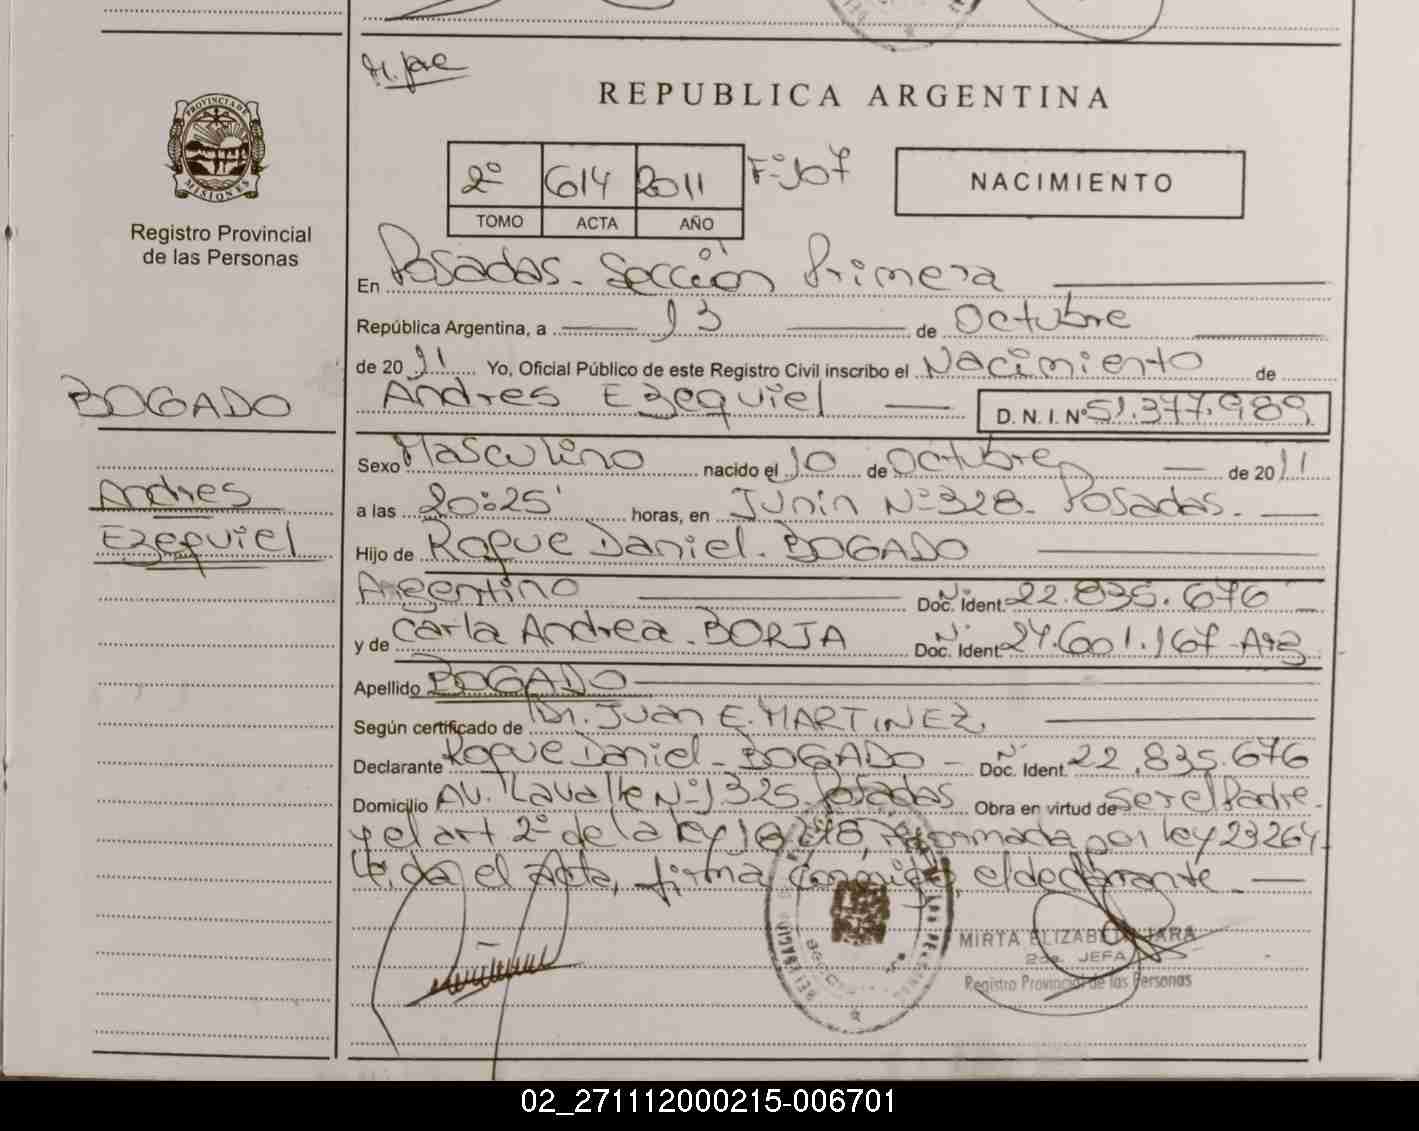 REPUBLICA ARGENTINA
PROVINCIA DE
MISIONES
Registro Provincial
de las Personas
BOGADO
Andres
Ezequiel
2º 614 2011 Fº 107
TOMO ACTA AÑO
NACIMIENTO
En Posadas - Sección Primera
República Argentina, a 13 de Octubre
de 20 11 Yo, Oficial Público de este Registro Civil inscribo el Nacimiento de
Andres Ezequiel D.N.I. Nº 51.377.989
Sexo Masculino nacido el 10 de Octubre de 20 11
a las 20:25' horas, en Junin Nº 328 - Posadas -
Hijo de Roque Daniel - BOGADO
Argentino Nº Doc. Ident. 22.835.676
y de Carla Andrea - BORJA Nº Doc. Ident. 27.601.167 - Arg
Apellido BOGADO
Según certificado de Dr. Juan E. MARTINEZ
Declarante Roque Daniel - BOGADO - Nº Doc. Ident. 22.835.676
Domicilio AV. Lavalle Nº 1325 - Posadas Obra en virtud de Ser el Padre -
y el art 2º de la ley 18248, reformada por ley 23264.
Leida el Acta, firma conmigo, el declarante -
MIRTA ELIZABETH JARA
2da. JEFA
Registro Provincial de las Personas
02_271112000215-006701